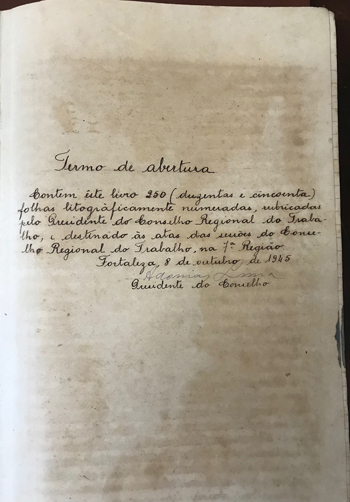 Termo de abertura
Contem êste livro 250 (duzentas e cincoenta)
folhas litográficamente numeradas, rubricadas
pelo Presidente do Conselho Regional do Traba-
lho, e destinado às atas das sessões do Conse-
lho Regional do Trabalho, na 7ª Região
Fortaleza, 8 de outubro de 1945
Adonias Lima
Presidente do Conselho